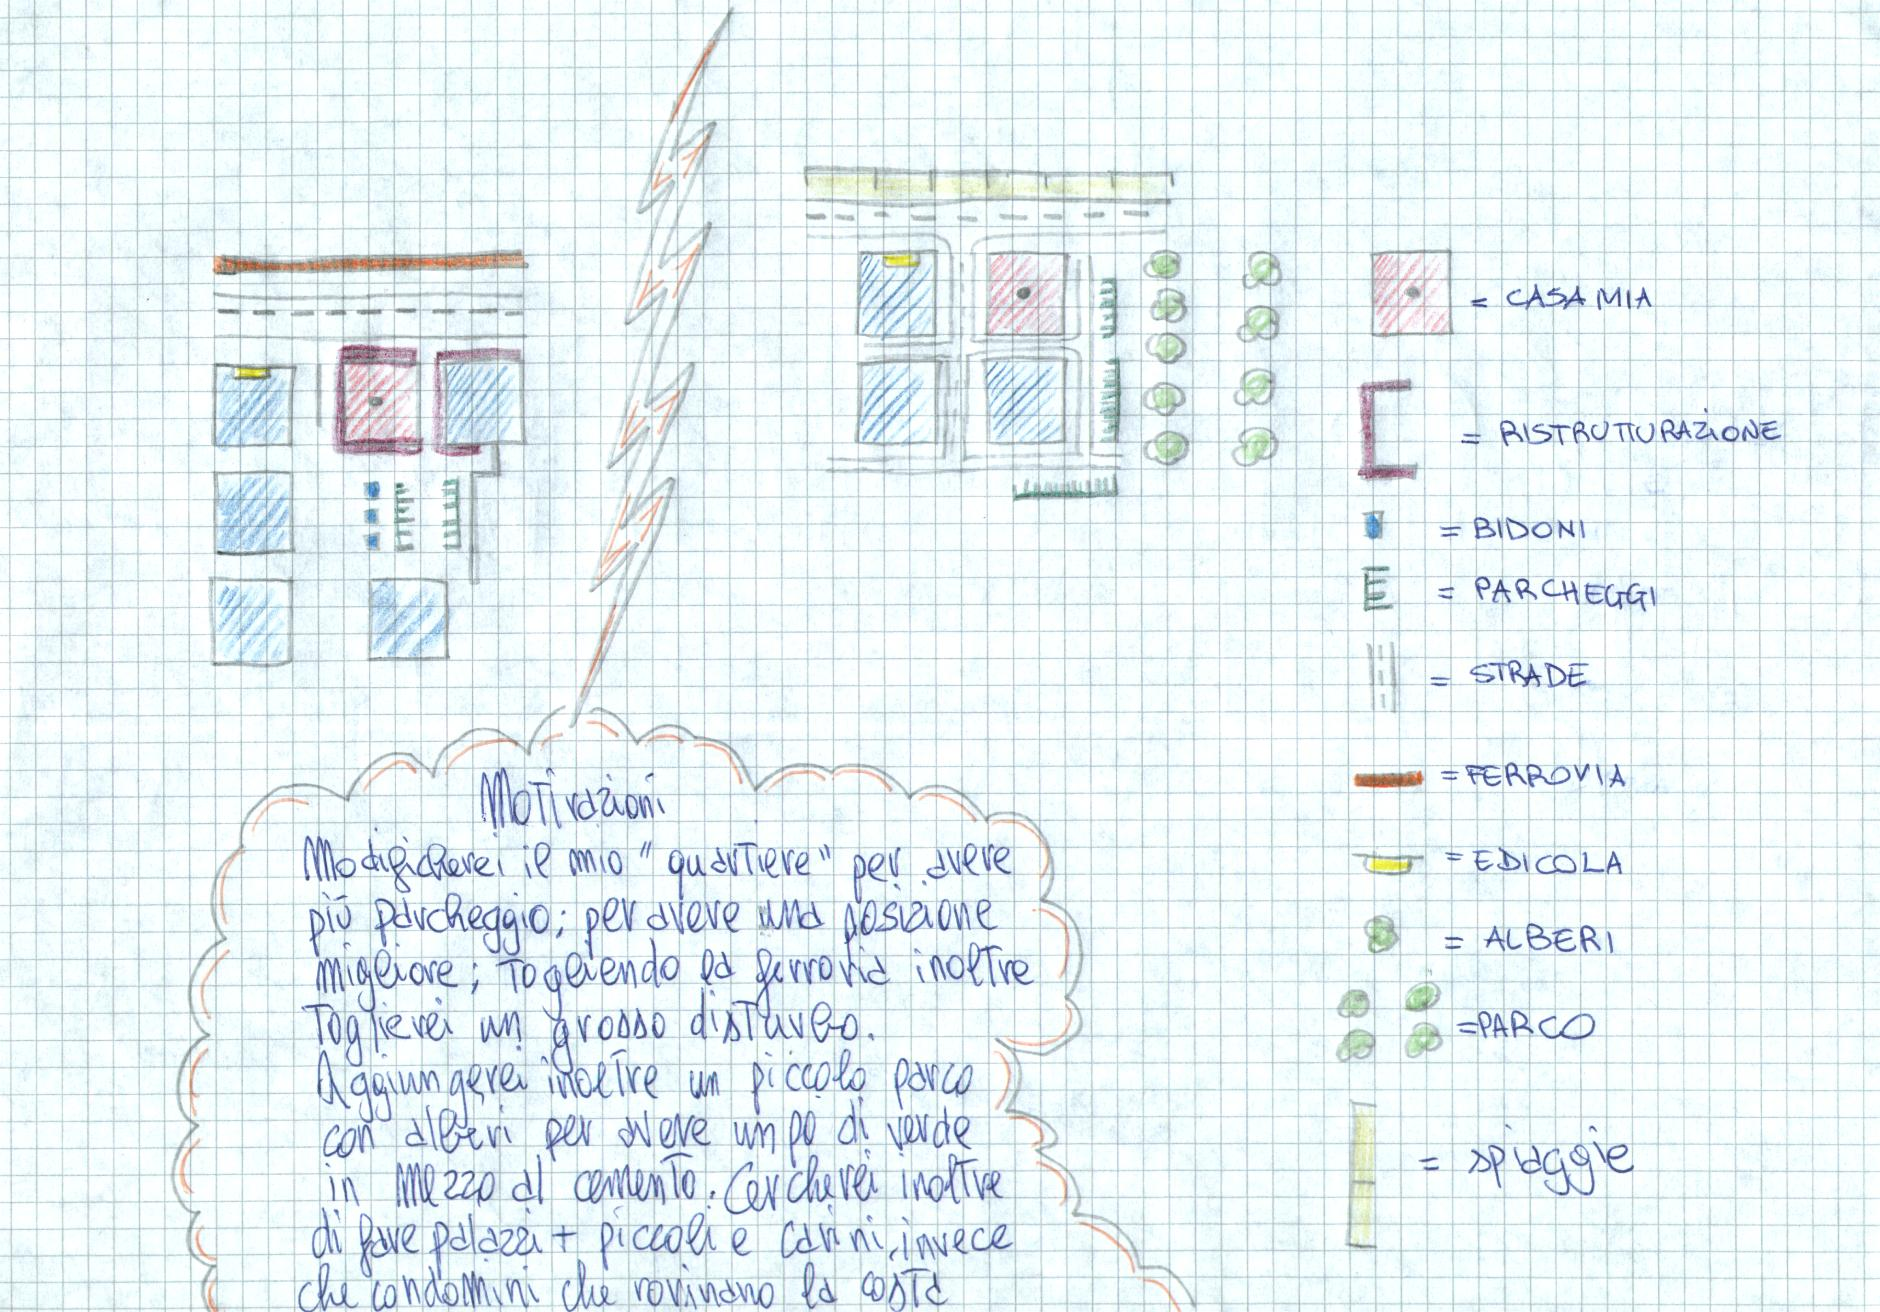 = CASA MIA
= RISTRUTTURAZIONE
= BIDONI
= PARCHEGGI
= STRADE
= FERROVIA
= EDICOLA
= ALBERI
= PARCO
= spiaggie
Motivazioni
Modificherei il mio "quartiere" per avere
più parcheggio; per avere una posizione
migliore; Togliendo la ferrovia inoltre
Toglierei un grosso disturbo.
Aggiungerei inoltre un piccolo parco
con alberi per avere un po di verde
in mezzo al cemento. Cercherei inoltre
di fare palazzi + piccoli e carini, invece
che condomini che rovinano la costa